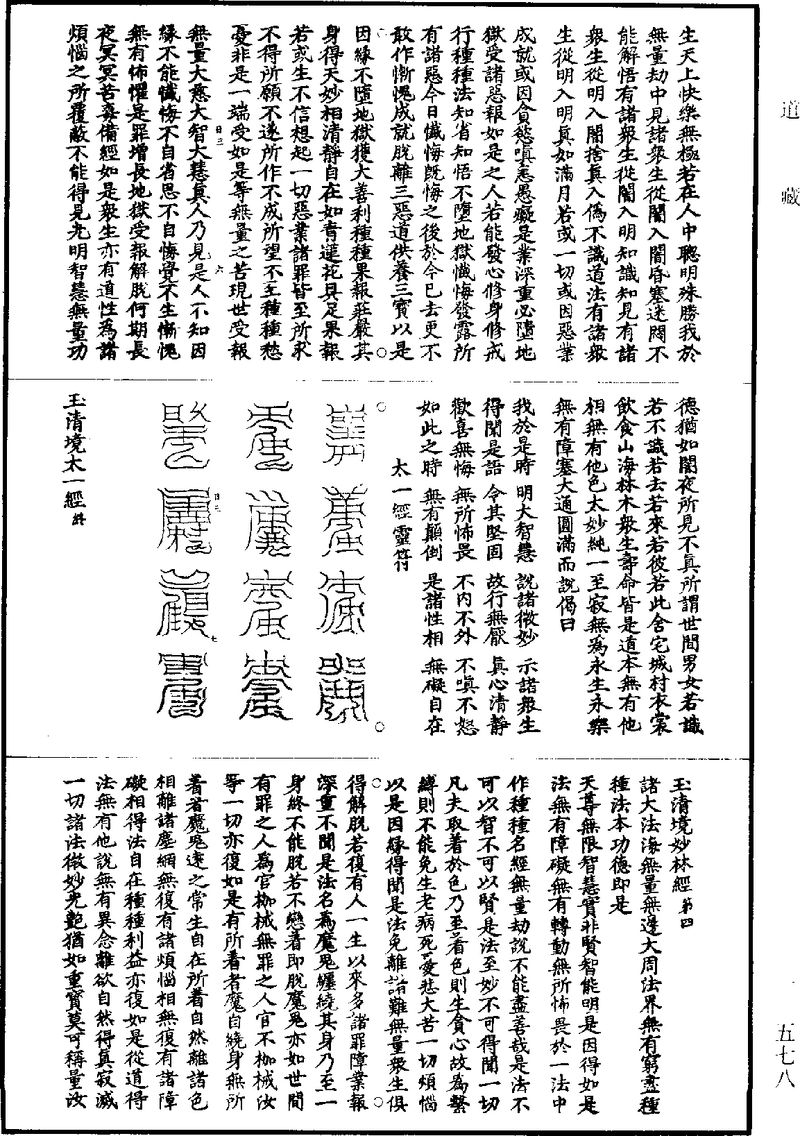 道藏
生天上快樂無極若在人中聰明殊勝我於
無量劫中見諸衆生從闇入闇昏塞迷悶不
能解悟有諸衆生從闇入明知識知見有諸
衆生從明入闇捨真入偽不識道法有諸衆
生從明入明真如滿月若或一切或因惡業
成就或因貪慾嗔恚愚癡是業深重必墮地
獄受諸惡報如是之人若能發心修身修戒
行種種法知省知悟不墮地獄懺悔發露所
有諸惡今日懺悔既悔之後於今已去更不
敢作慚愧成就脫離三惡道供養三寶以是
因緣不墮地獄獲大善利種種果報莊嚴其
身得天妙相清靜自在如青蓮花具足果報
若或生不信想起一切惡業諸罪皆至所求
不得所願不遂所作不成所望不至種種愁
憂非是一端受如是等無量之苦現世受報
無量大慈大智大慧真人乃見是人不知因
緣不能懺悔不自省思不自悔覺不生慚愧
無有怖懼是罪增長地獄受報解脫何期長
夜冥冥苦毒備經如是衆生亦有道性為諸
煩惱之所覆蔽不能得見光明智慧無量功
德猶如闇夜所見不真所謂世間男女若識
若不識若去若來若彼若此舍宅城村衣裳
飲食山海林木衆生壽命皆是道本無有他
相無有他色太妙純一至寂無為永生永樂
無有障塞大通圓滿而說偈曰
我於是時 明大智慧 說諸微妙 示諸衆生
得聞是語 令其堅固 故行無厭 真心清靜
歡喜無悔 無所怖畏 不內不外 不嗔不怒
如此之時 無有顛倒 是諸性相 無礙自在
太一經靈符
玉清境太一經終
玉清境妙林經第四
諸大法海無量無邊大周法界無有窮盡種
種法本功德即是
天尊無限智慧實非賢智能明是因得如是
法無有障礙無有轉動無所怖畏於一法中
作種種名經無量劫說不能盡善哉是法不
可以智不可以賢是法至妙不可得聞一切
凡夫取着於色乃至着色則生貪心故為繫
縛則不能免生老病死憂悲大苦一切煩惱
以是因緣得聞是法免離諸難無量衆生俱
得解脫若復有人一生以來多諸罪障業報
深重不聞是法名為魔鬼纏繞其身乃至一
身終不能脫若不戀着即脫魔鬼亦如世間
有罪之人為官枷械無罪之人官不枷械汝
等一切亦復如是有所着者魔自繞身無所
着者魔鬼遠之常生自在所着自然離諸色
相離諸塵網無復有諸煩惱相無復有諸障
礙相得法自在種種利益亦復如是從道得
法無有他說無有異念離欲自然得真寂滅
一切諸法微妙光豔猶如重寶莫可稱量汝
一 五七八